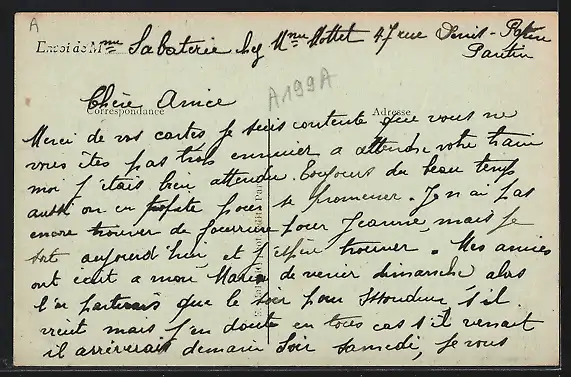 A
Envoi de Mme Sabaterie chez Mme Mottet 47 rue Denis-Papin
Pantin
A199A
Chère Amice
Correspondance Adresse
Merci de vos cartes je suis contente que vous ne
vous ites pas trop ennuier a attendre votre train
moi j'étais bien attendu. Toujours du beau temps
aussi on en profite pour se promener. Je n'ai pas
encore trouver de fourrure pour Jeanne, mais je
sort aujourd'hui et j'espère trouver. Mes amies
ont écrit a mon Mari de venir dimanche alors
que le soir pour Issoudun s'il
vient mais j'en doute en tous cas s'il venait
il arriverait demain Soir samedi, je vous